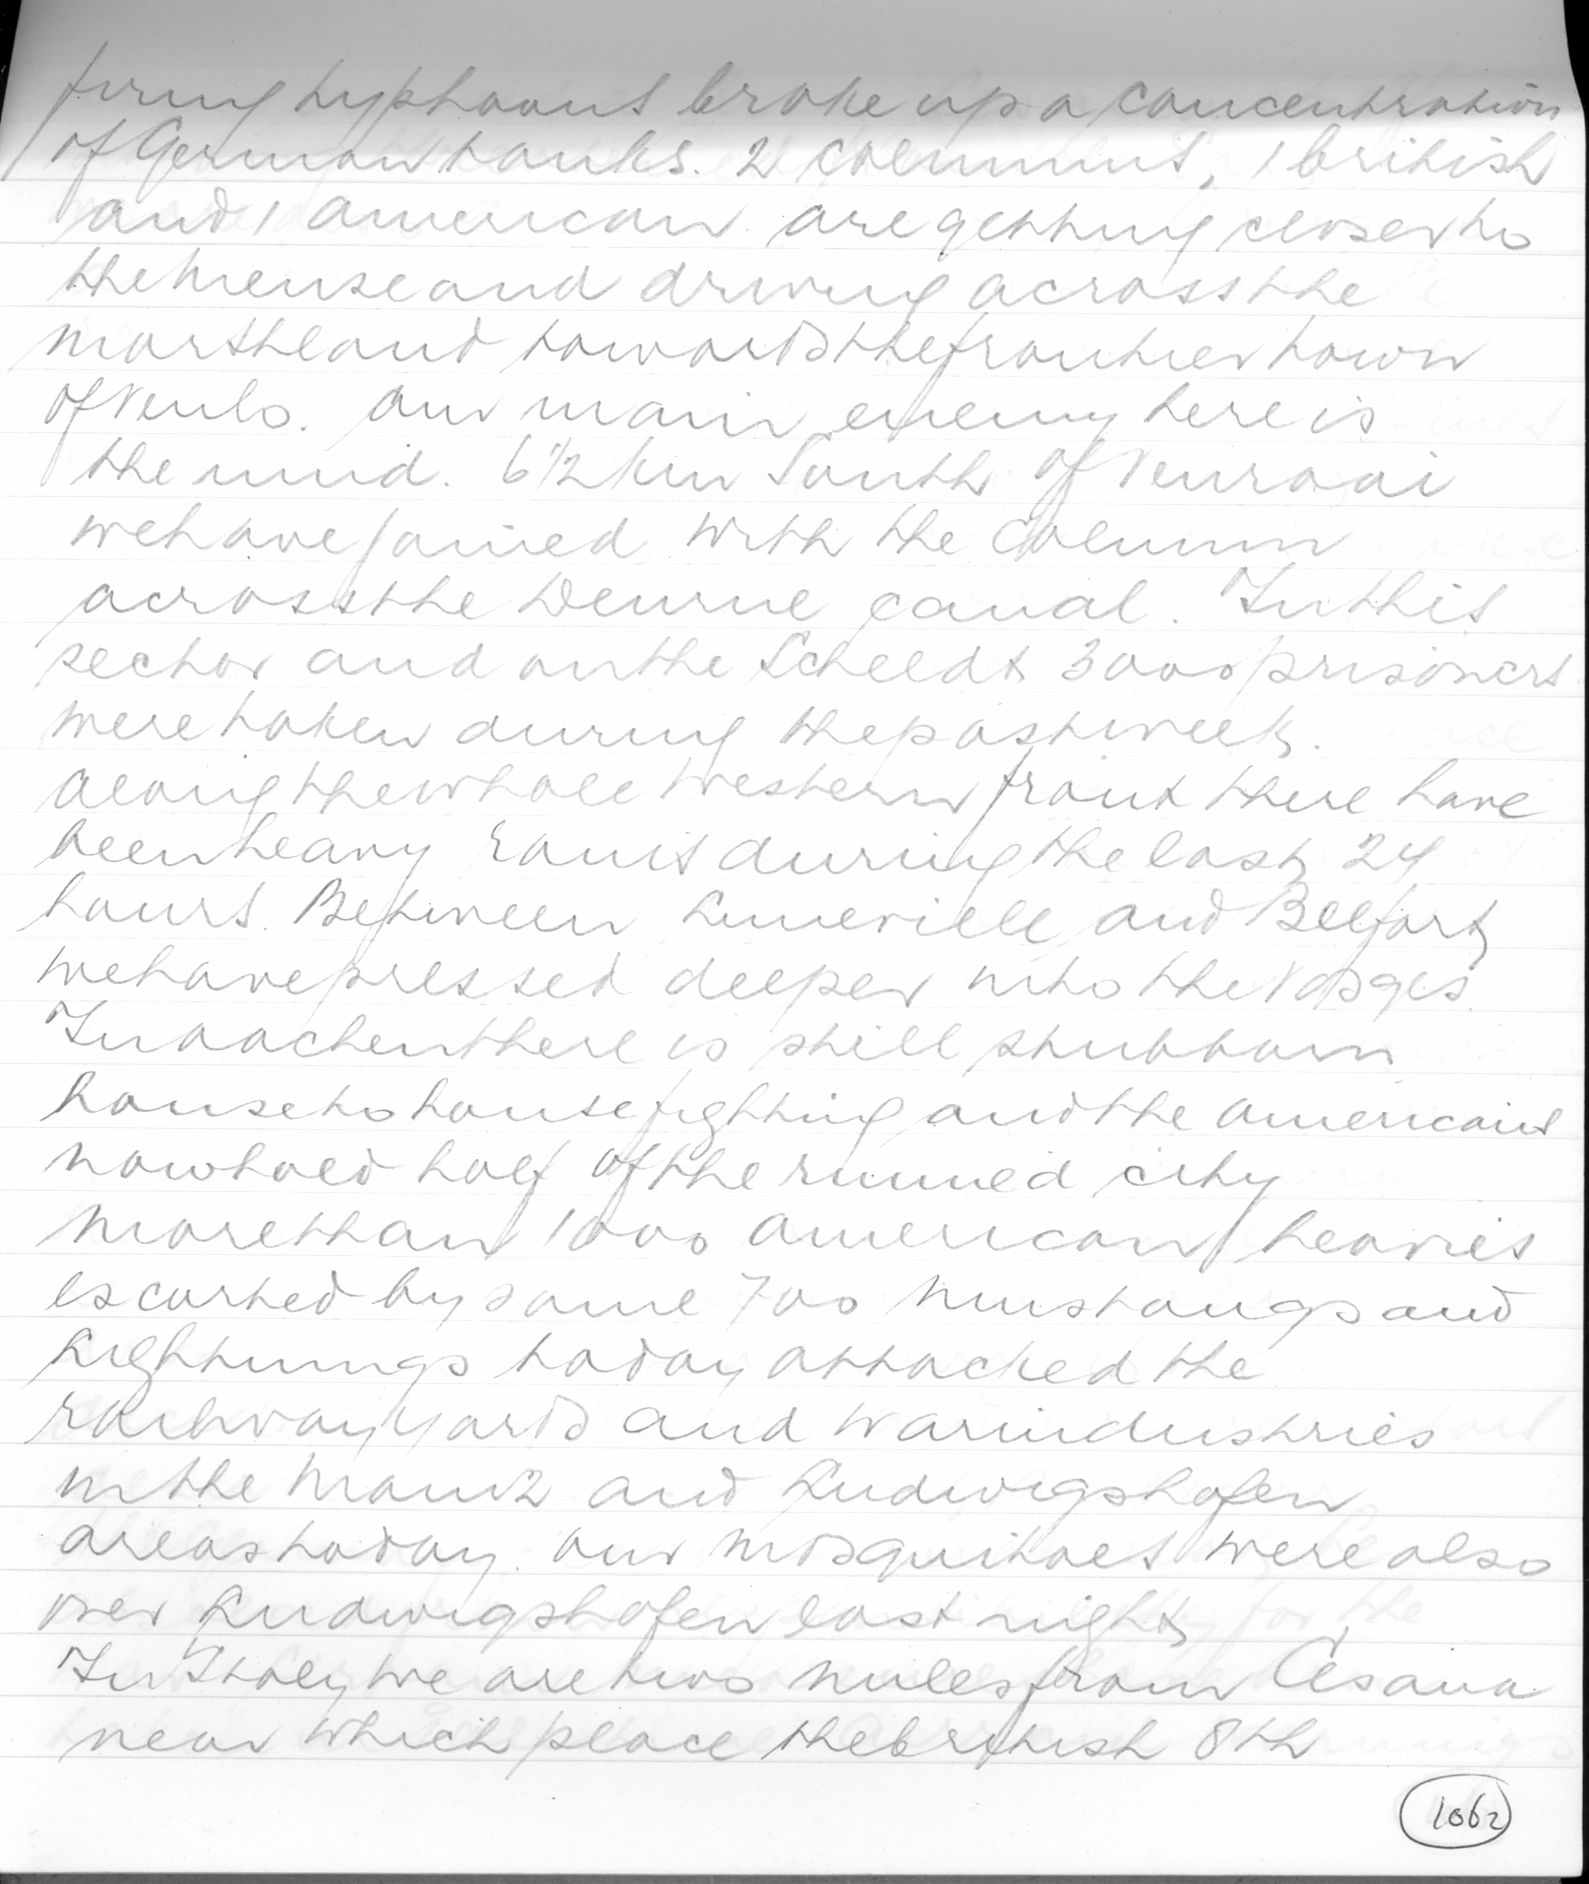 firing typhoons broke up a concentration
of German tanks. 2 columns, 1 british
and 1 american are getting closer to
the Meuse and driving across the
marshland towards the frontier town
of Venlo. Our main enemy here is
the mud. 6½ km South of Venraai
we have joined with the column
across the Deurne canal. In this
sector and on the Scheldt 3000 prisoners
were taken during the past week.
Along the whole Western front there have
been heavy rains during the last 24
hours. Between Luneville and Belfort
we have pressed deeper into the Vosges.
In aachen there is still stubborn
house to house fighting and the americans
now hold half of the ruined city
More than 1000 american heavies
escorted by some 700 Mustangs and
Lightnings today attacked the
railway yards and war industries
in the Mainz and Ludwigshofen
areas today. our Mosquitoes were also
over Ludwigshofen last night
In Italy we are two miles from Cesana
near which place the british 8th
1062